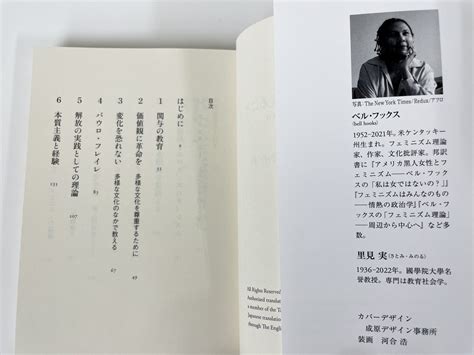 目次
はじめに
1 関与の教育
2 価値観に革命を 多様な文化を尊重するために 45
3 変化を恐れない 多様な文化のなかで教える 69
4 パウロ・フレイレ 67
5 解放の実践としての理論 107
6 本質主義と経験 133
All Rights Reserved
Authorized translation
a member of the
Japanese translation
through The English
写真:The New York Times/Redux/アフロ
ベル・フックス
(bell hooks)
1952-2021年。米ケンタッキー
州生まれ。フェミニズム理論
家、作家、文化批評家。邦訳
書に『アメリカ黒人女性とフ
ェミニズム――ベル・フック
スの「私は女ではないの?」』
『フェミニズムはみんなのもの
――情熱の政治学』『ベル・フ
ックスの「フェミニズム理論」
――周辺から中心へ』など多
数。
里見 実(さとみ・みのる)
1936-2022年。國學院大學名
誉教授。専門は教育社会学。
カバーデザイン
成原デザイン事務所
装画 河合 浩